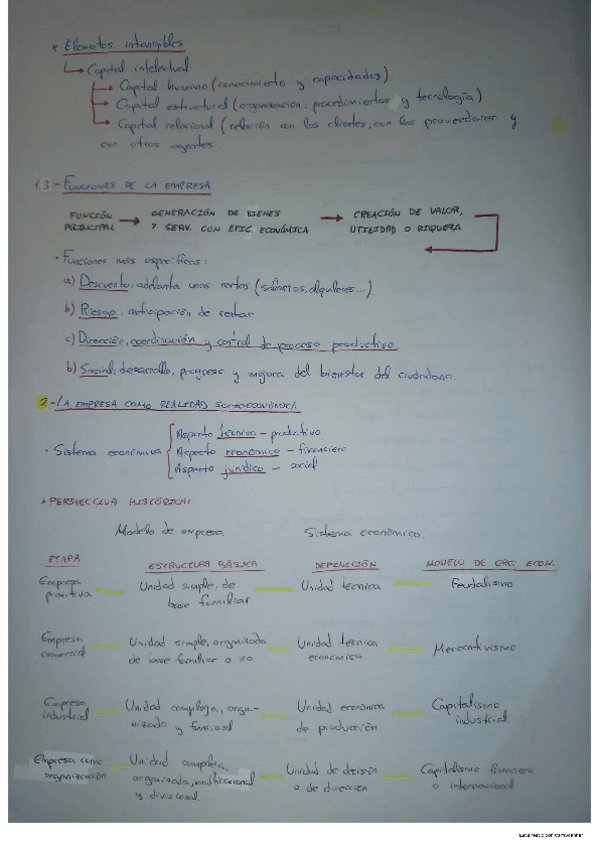 * Elementos intangibles
Capital intelectual
Capital humano (conocimiento y capacidades)
Capital estructural (organización, procedimientos y tecnología)
Capital relacional (relación con los clientes, con los proveedores y
con otros agentes.
1.3 - FUNCIONES DE LA EMPRESA
FUNCIÓN PRINCIPAL → GENERACIÓN DE BIENES Y SERV. CON EFIC. ECONÓMICA → CREACIÓN DE VALOR, UTILIDAD O RIQUEZA
· Funciones más específicas:
a) Descuento: adelanta unas rentas (salarios, alquileres...).
b) Riesgo: anticipación de rentas
c) Dirección, coordinación y control de proceso productivo.
b) Social: desarrollo, progreso y mejora del bienestar del ciudadano.
2 - LA EMPRESA COMO REALIDAD SOCIOECONÓMICA
Aspecto técnico - productivo
· Sistema económico Aspecto económico - financiero
Aspecto jurídico - social
* PERSPECTIVA HISTÓRICA:
Modelo de empresa Sistema económico.
ETAPA ESTRUCTURA BÁSICA DEFINICIÓN MODELO DE ORG. ECON.
Empresa primitiva Unidad simple, de base familiar Unidad técnica Feudalismo
Empresa comercial Unidad simple, organizada de base familiar o no Unidad técnica económica Mercantivismo
Empresa industrial Unidad compleja, organizado y funcional Unidad económica de producción Capitalismo industrial.
Empresa como organización Unidad compleja, organizada, multifuncional y divisional. Unidad de decisión o de dirección Capitalismo financiero o internacional